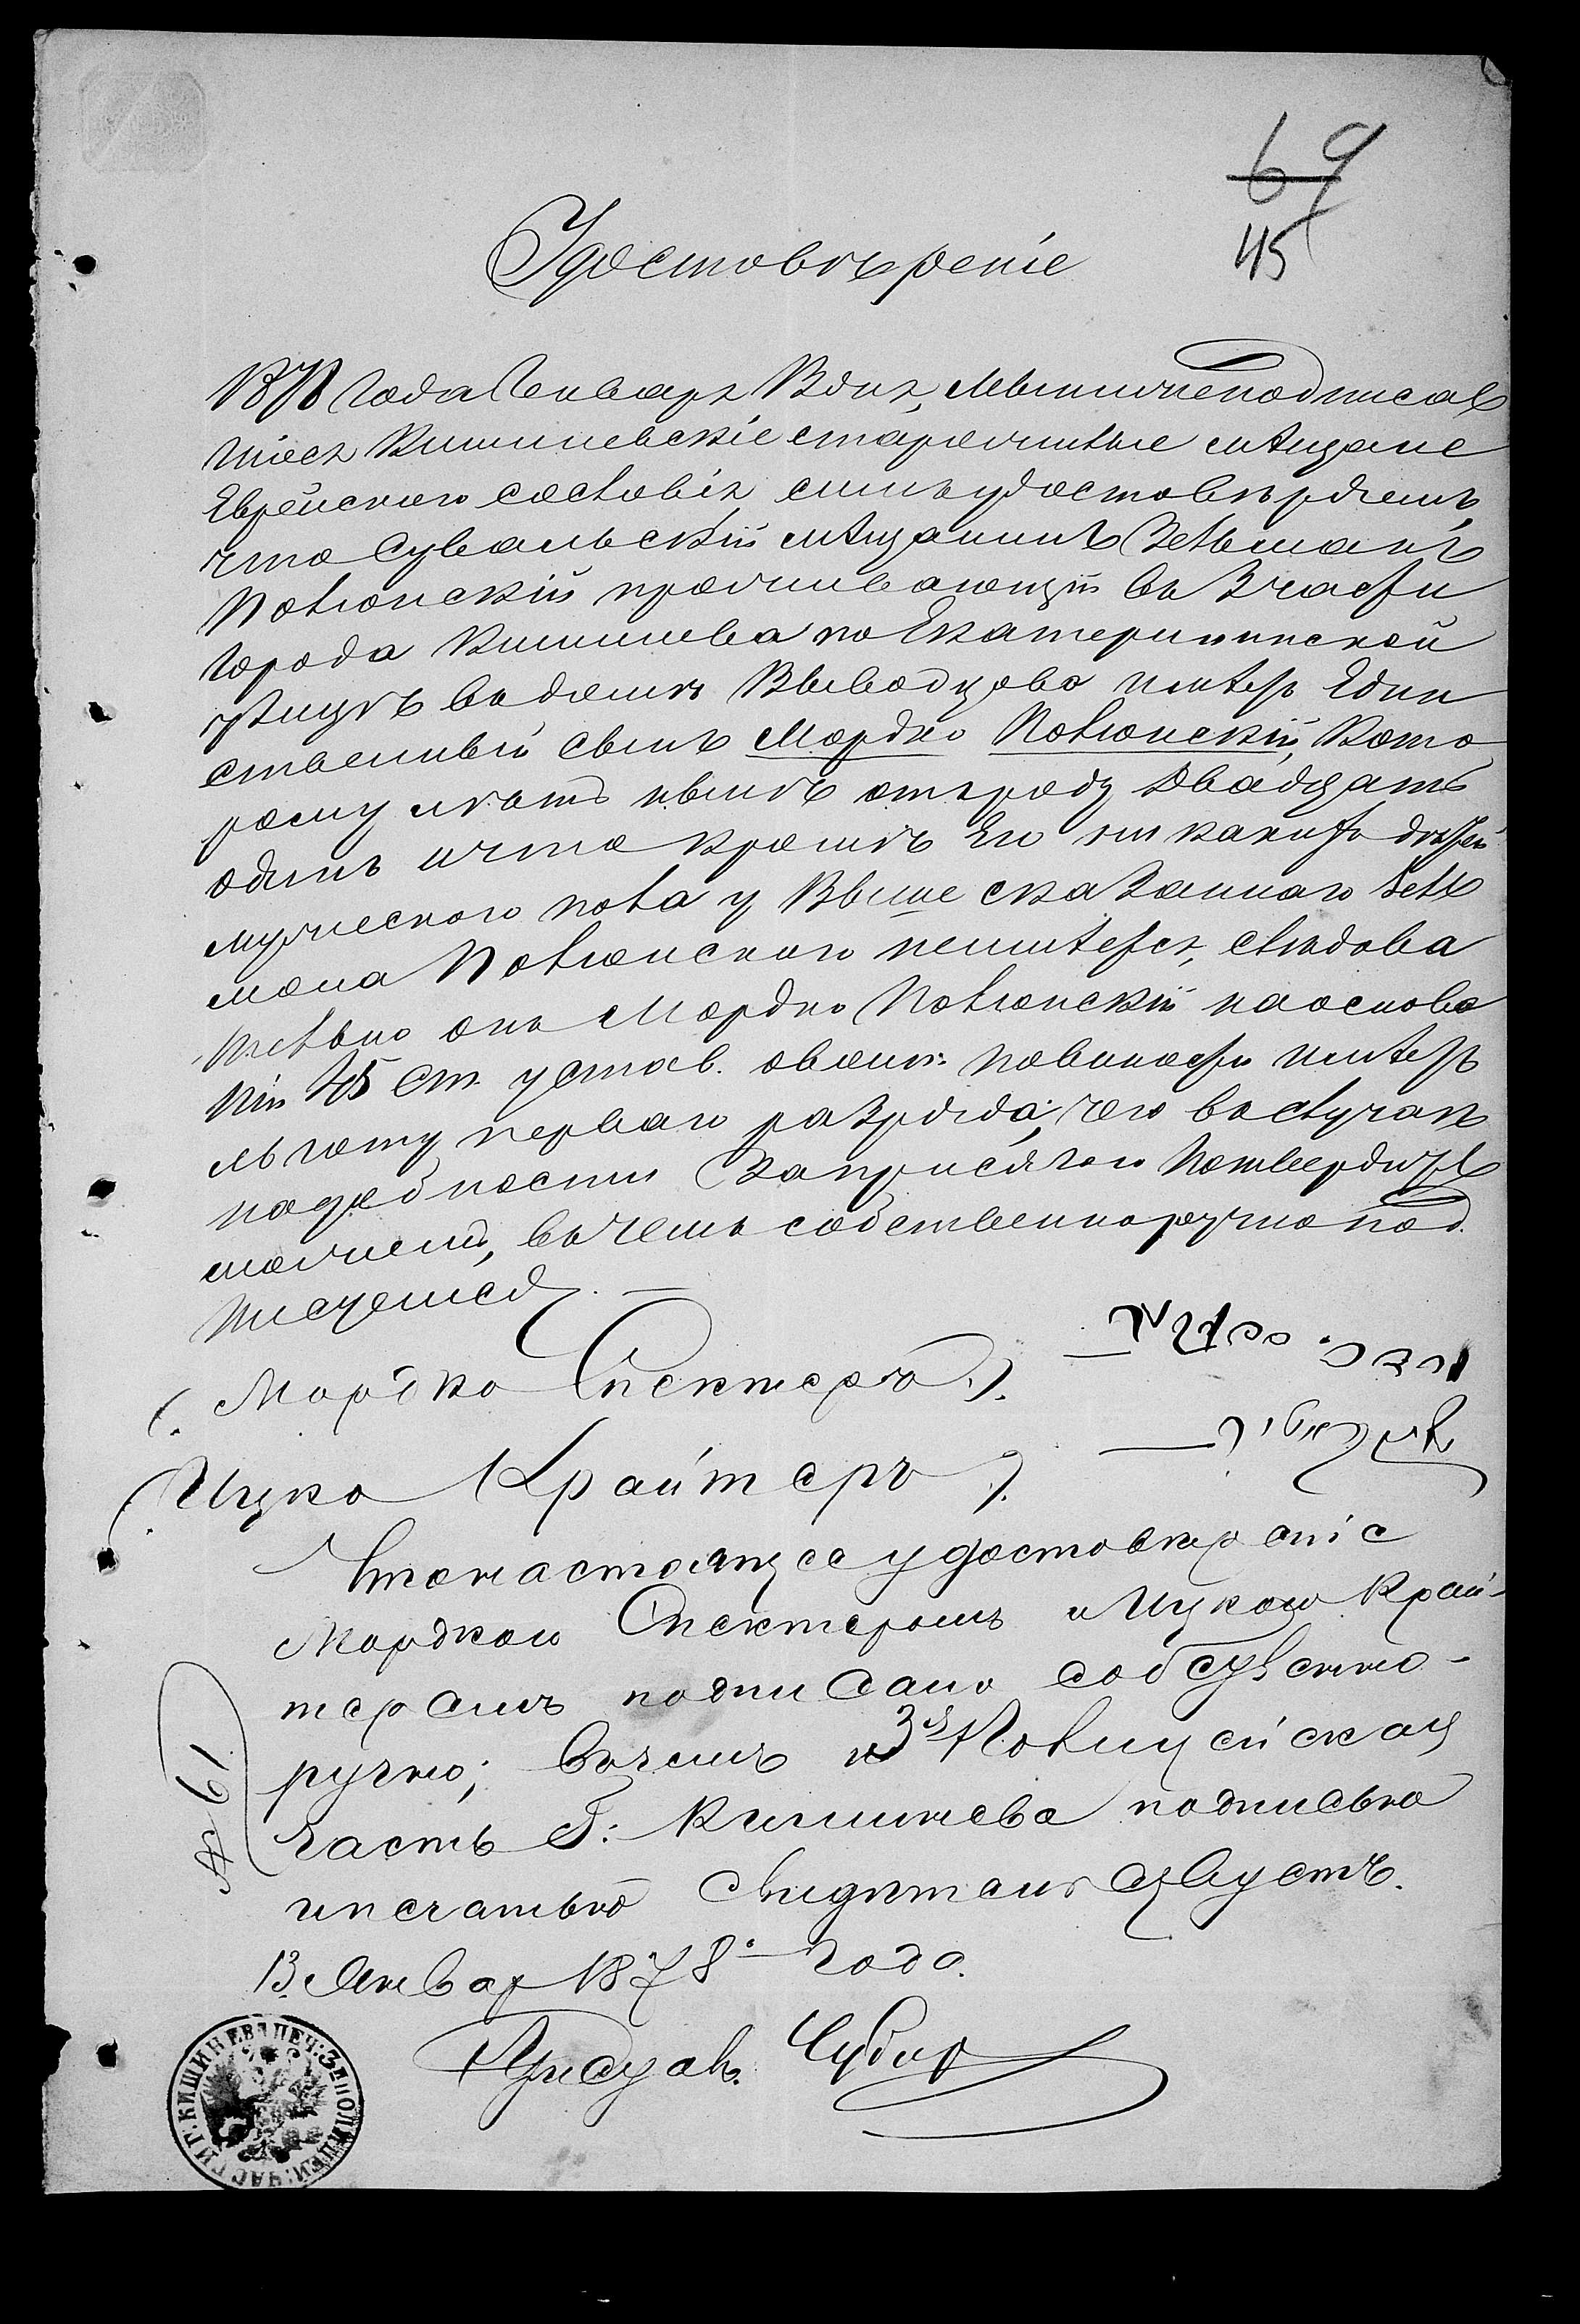 69
45
Удостовѣреніе
1878 года Генваря дня, мы нижеподписав
шіеся Кишиневскіе старожилые мѣщане
Еврейского сословія, симъ удостовѣряемъ,
что Сувальскій мѣщанинъ Зельманъ
Полюнскій проживающій въ 3 части
города Кишинева по Екатерининской
улицѣ въ домѣ Выводцова имѣетъ Един
ственный сынъ Мордко Полюнскій, Кото
рому лѣтъ нынѣ отъ роду двадцать
одинъ и что кромѣ Его никакихъ дѣтей
мужеского пола у Выше сказанного Зель
мана Полюнского неимѣется, слѣдова
тельно онъ Мордко Полюнскій на основа
ніи 45 ст. устав. овоин: повинности имѣетъ
льготу перваго разряда, чего въ случаѣ
надобности Заприсягою потвердить
можемъ, въ чемъ собственноручно под.
писуемся. —
(. Мордко Спектеръ .).
(. Ицко Крайтеръ .).
Что настоящее удостовѣреніе
Мордкою Спектеромъ и Ицкою Край-
теромъ подписано собственно-
ручно; въ чемъ 3я Полицейская
часть г. Кишинева подписью
и печатью свидѣтельствуетъ.
13 Январ 1878 года.
№ 61
Приставъ
ПЕЧ: 3й ПОЛИЦЕЙ: ЧАСТИ Г: КИШИНЕВА